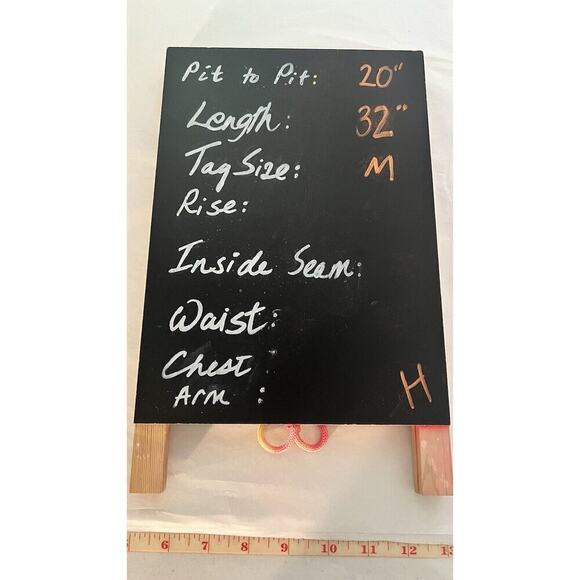 Pit to Pit: 20"
Length: 32"
Tag Size: M
Rise:
Inside Seam:
Waist:
Chest
Arm : H
5 6 7 8 9 10 11 12 13